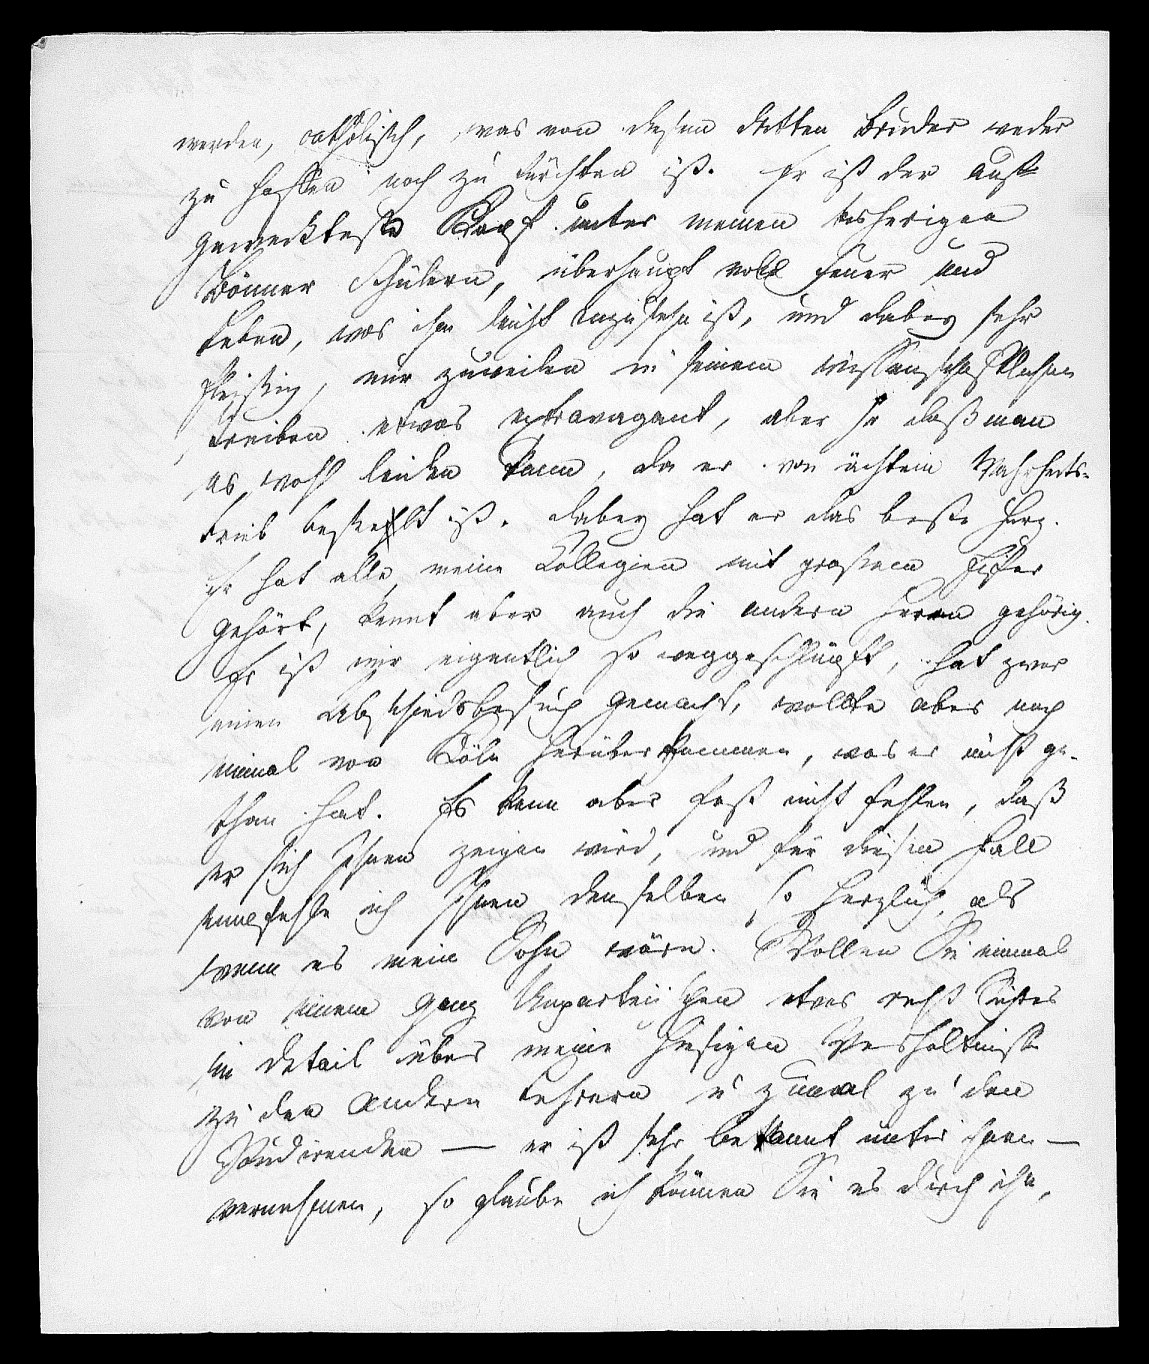 werden, catholisch, was von diesem dritten Bruder weder
zu hoffen noch zu fürchten ist. Er ist der auf-
geweckteste Kopf unter meinen bisherigen
Bonner Schülern, überhaupt voll Feuer und
Leben, was ihm leicht anzusehn ist, und dabey sehr
fleissig, nur zuweilen in seinem wissenschaftlichen
Treiben etwas extravagant, aber so daß man
es wohl leiden kann, da er von ächtem Wahrheits-
trieb beseelt ist. Dabey hat er das beste Herz.
Er hat alle meine Collegien mit großem Eifer
gehört, kennt aber auch die andern Herrn gehörig.
Er ist mir eigentlich so weggeschlüpft, hat zwar
einen Abschiedsbesuch gemacht, wollte aber noch
einmal von Köln herüber kommen, was er nicht ge-
than hat. Es kann aber fast nicht fehlen, daß
er sich Ihnen zeigen wird, und für diesen Fall
empfehle ich Ihnen denselben so herzlich, als
wenn es mein Sohn wäre. Wollen Sie einmal
von einem ganz Unparteiischen etwas recht
im Detail über meine hiesigen Verhältnisse
zu den andern Lehrern u zumal zu den
Studirenden — er ist sehr bekannt unter ihnen —
vernehmen, so glaube ich können Sie es durch ihn,